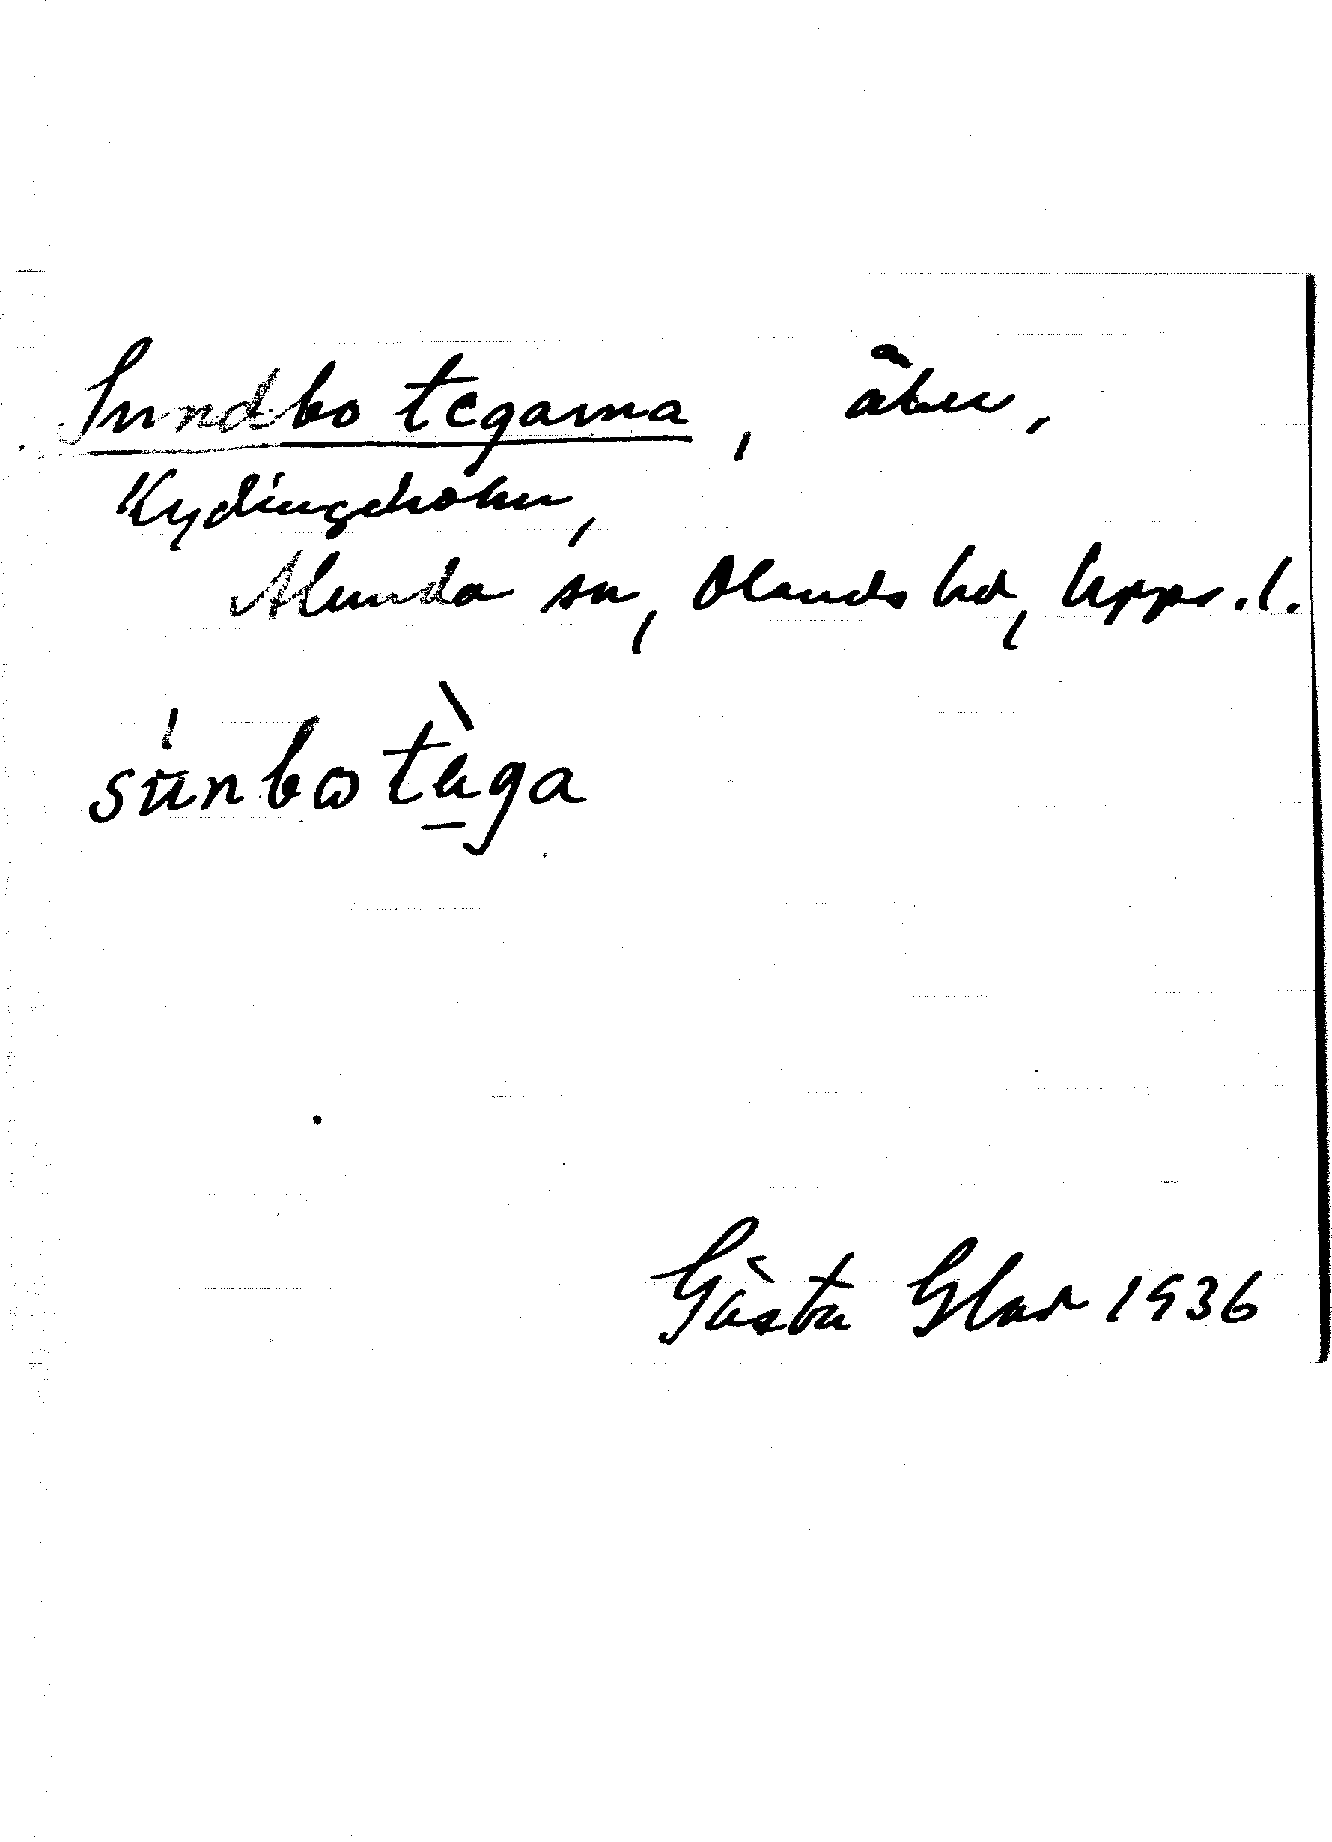 Sundbotegarna, åker,
Kydingeholm,
Alunda sn, Olands hd, Upps.l.
súnbωtèga
Gösta Glad 1936